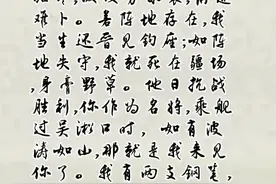 难卜。若阵地存在,我
当生还晋见钧座;如阵
地失守,我就死在疆场
,身膏野草。他日抗战
胜利,你作为名将,乘舰
过吴淞口时,如有波
涛如山,那就是我来见
你了。我有两支钢笔,